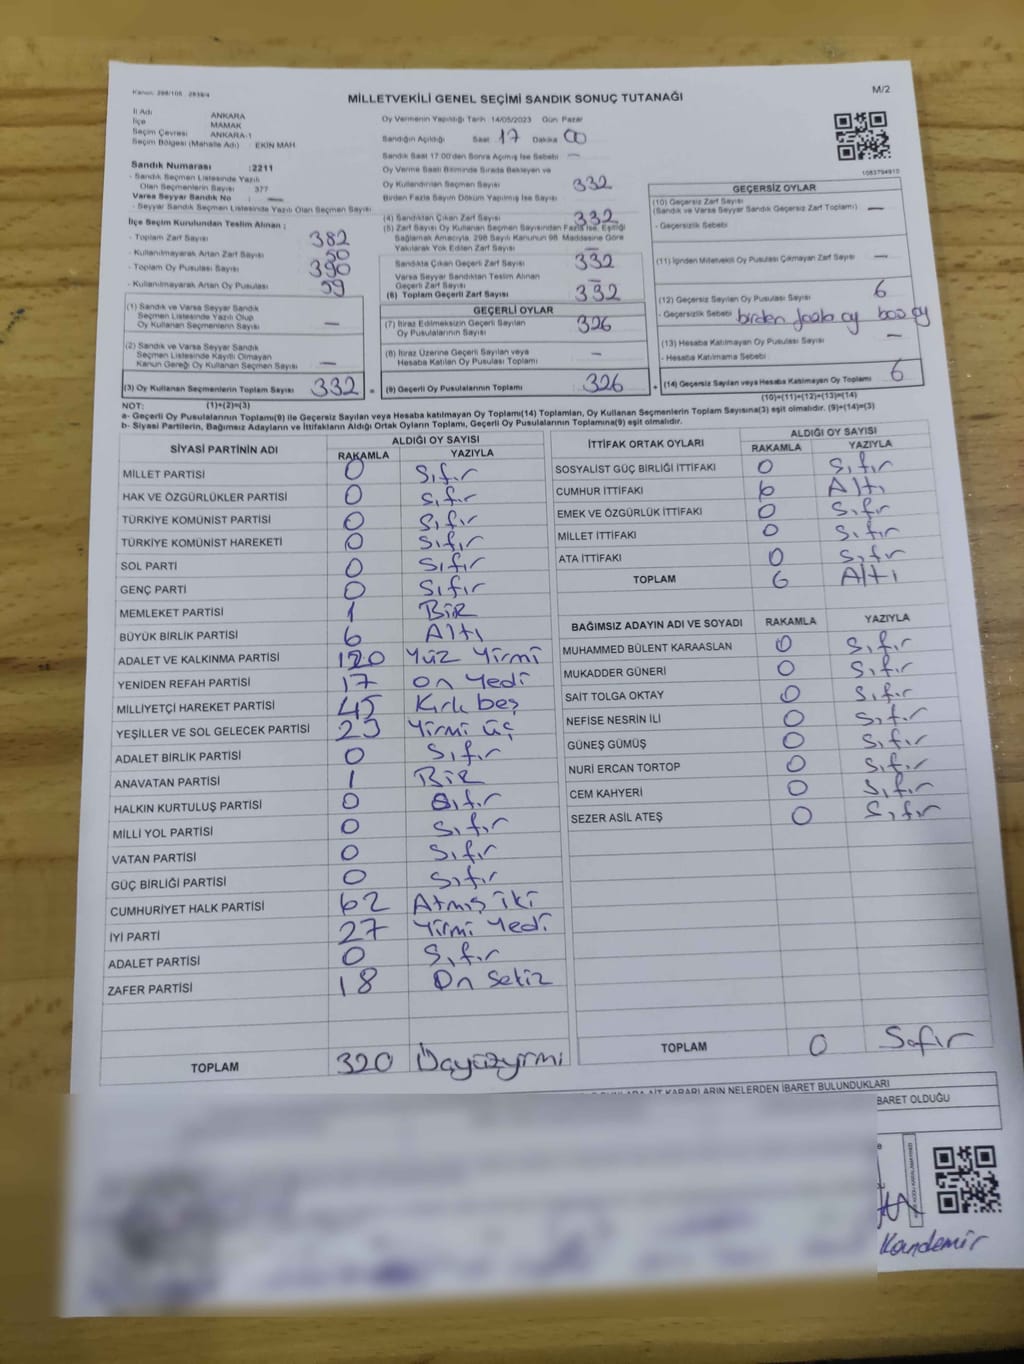 Kanun: 298/105 - 2839/4
MİLLETVEKİLİ GENEL SEÇİMİ SANDIK SONUÇ TUTANAĞI
M/2
İl Adı ANKARA
İlçe MAMAK
Seçim Çevresi ANKARA-1
Seçim Bölgesi (Mahalle Adı) : EKİN MAH.
Oy Vermenin Yapıldığı Tarih 14/05/2023 Gün Pazar
Sandığın Açıldığı Saat 17 Dakika 00
Sandık Saat 17:00'den Sonra Açılmış İse Sebebi —
Oy Verme Saati Bitiminde Sırada Bekleyen ve
Oy Kullandırılan Seçmen Sayısı 332
Birden Fazla Sayım Döküm Yapılmış İse Sayısı
Sandık Numarası :2211
- Sandık Seçmen Listesinde Yazılı
Olan Seçmenlerin Sayısı 377
Varsa Seyyar Sandık No : —
- Seyyar Sandık Seçmen Listesinde Yazılı Olan Seçmen Sayısı
İlçe Seçim Kurulundan Teslim Alınan ;
- Toplam Zarf Sayısı 382
- Kullanılmayarak Artan Zarf Sayısı 50
- Toplam Oy Pusulası Sayısı 390
- Kullanılmayarak Artan Oy Pusulası 59
(1) Sandık ve Varsa Seyyar Sandık
Seçmen Listesinde Yazılı Olup
Oy Kullanan Seçmenlerin Sayısı —
(2) Sandık ve Varsa Seyyar Sandık
Seçmen Listesinde Kayıtlı Olmayan
Kanun Gereği Oy Kullanan Seçmen Sayısı —
(3) Oy Kullanan Seçmenlerin Toplam Sayısı 332 =
(4) Sandıktan Çıkan Zarf Sayısı 332
(5) Zarf Sayısı Oy Kullanan Seçmen Sayısından Fazla ise, Eşitliği
Sağlamak Amacıyla, 298 Sayılı Kanunun 98. Maddesine Göre
Yakılarak Yok Edilen Zarf Sayısı —
Sandıkta Çıkan Geçerli Zarf Sayısı 332
Varsa Seyyar Sandıktan Teslim Alınan
Geçerli Zarf Sayısı —
(6) Toplam Geçerli Zarf Sayısı 332
GEÇERLİ OYLAR
(7) İtiraz Edilmeksizin Geçerli Sayılan
Oy Pusulalarının Sayısı 326
(8) İtiraz Üzerine Geçerli Sayılan veya
Hesaba Katılan Oy Pusulası Toplamı —
(9) Geçerli Oy Pusulalarının Toplamı 326 +
1083794910
GEÇERSİZ OYLAR
(10) Geçersiz Zarf Sayısı
(Sandık ve Varsa Seyyar Sandık Geçersiz Zarf Toplamı) —
- Geçersizlik Sebebi
(11) İçinden Milletvekili Oy Pusulası Çıkmayan Zarf Sayısı —
(12) Geçersiz Sayılan Oy Pusulası Sayısı 6
- Geçersizlik Sebebi birden fazla oy boş oy
(13) Hesaba Katılmayan Oy Pusulası Sayısı —
- Hesaba Katılmama Sebebi
(14) Geçersiz Sayılan veya Hesaba Katılmayan Oy Toplamı 6
NOT: (1)+(2)=(3) (10)+(11)+(12)+(13)=(14)
a- Geçerli Oy Pusulalarının Toplamı(9) ile Geçersiz Sayılan veya Hesaba katılmayan Oy Toplamı(14) Toplamları, Oy Kullanan Seçmenlerin Toplam Sayısına(3) eşit olmalıdır. (9)+(14)=(3)
b- Siyasi Partilerin, Bağımsız Adayların ve İttifakların Aldığı Oy Toplamı, Geçerli Oy Pusulalarının Toplamına(9) eşit olmalıdır.
SİYASİ PARTİNİN ADI ALDIĞI OY SAYISI
RAKAMLA YAZIYLA
MİLLET PARTİSİ 0 Sıfır
HAK VE ÖZGÜRLÜKLER PARTİSİ 0 Sıfır
TÜRKİYE KOMÜNİST PARTİSİ 0 Sıfır
TÜRKİYE KOMÜNİST HAREKETİ 0 Sıfır
SOL PARTİ 0 Sıfır
GENÇ PARTİ 0 Sıfır
MEMLEKET PARTİSİ 1 BİR
BÜYÜK BİRLİK PARTİSİ 6 Altı
ADALET VE KALKINMA PARTİSİ 120 Yüz Yirmi
YENİDEN REFAH PARTİSİ 17 On Yedi
MİLLİYETÇİ HAREKET PARTİSİ 45 Kırk beş
YEŞİLLER VE SOL GELECEK PARTİSİ 23 Yirmi üç
ADALET BİRLİK PARTİSİ 0 Sıfır
ANAVATAN PARTİSİ 1 BİR
HALKIN KURTULUŞ PARTİSİ 0 Sıfır
MİLLİ YOL PARTİSİ 0 Sıfır
VATAN PARTİSİ 0 Sıfır
GÜÇ BİRLİĞİ PARTİSİ 0 Sıfır
CUMHURİYET HALK PARTİSİ 62 Atmış iki
İYİ PARTİ 27 Yirmi Yedi
ADALET PARTİSİ 0 Sıfır
ZAFER PARTİSİ 18 On Sekiz
TOPLAM 320 Üçyüzyirmi
İTTİFAK ORTAK OYLARI ALDIĞI OY SAYISI
RAKAMLA YAZIYLA
SOSYALİST GÜÇ BİRLİĞİ İTTİFAKI 0 Sıfır
CUMHUR İTTİFAKI 6 Altı
EMEK VE ÖZGÜRLÜK İTTİFAKI 0 Sıfır
MİLLET İTTİFAKI 0 Sıfır
ATA İTTİFAKI 0 Sıfır
TOPLAM 6 Altı
BAĞIMSIZ ADAYIN ADI VE SOYADI RAKAMLA YAZIYLA
MUHAMMED BÜLENT KARAASLAN 0 Sıfır
MUKADDER GÜNERİ 0 Sıfır
SAİT TOLGA OKTAY 0 Sıfır
NEFİSE NESRİN İLİ 0 Sıfır
GÜNEŞ GÜMÜŞ 0 Sıfır
NURİ ERCAN TORTOP 0 Sıfır
CEM KAHYERİ 0 Sıfır
SEZER ASİL ATEŞ 0 Sıfır
TOPLAM 0 Sıfır
AİT KARARLARIN NELERDEN İBARET BULUNDUKLARI
BARET OLDUĞU
Kandemir